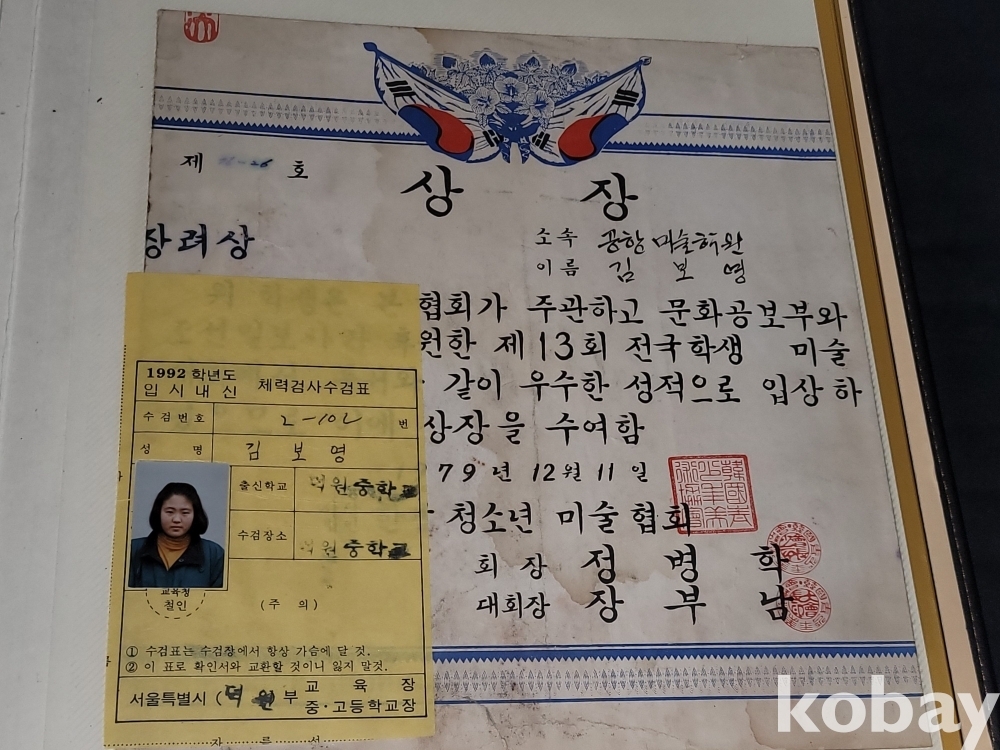 제 호
상 장
장려상
소속 공항미술학원
이름 김보영
협회가 주관하고 문화공보부와
원한 제13회 전국학생 미술
같이 우수한 성적으로 입상하
상장을 수여함
79년 12월 11일
청소년 미술협회
회장 정병학
대회장 장부남
1992 학년도
입시내신 체력검사수검표
수검번호 2-102 번
성명 김보영
출신학교 덕원중학교
수검장소 덕원중학교
교육청
철인
(주 의)
① 수검표는 수검장에서 항상 가슴에 달 것.
② 이 표로 확인서와 교환할 것이니 잃지 말것.
서울특별시 (덕원부 교육장
중·고등학교장
자르선
kobay